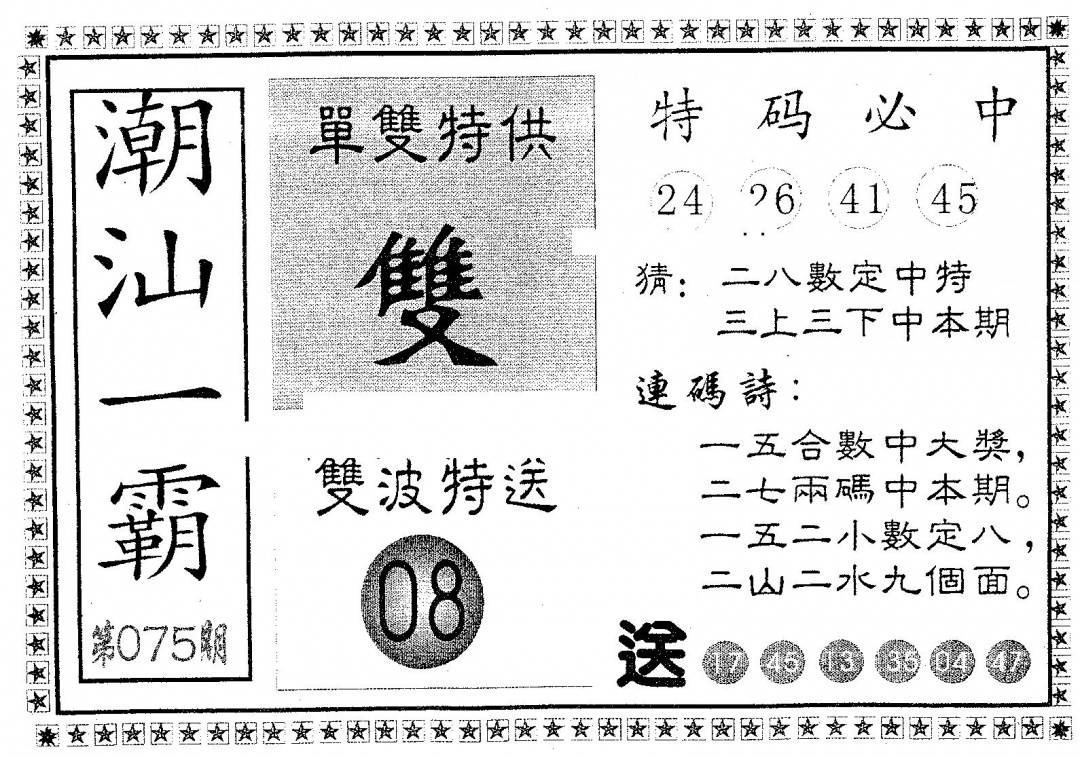 潮汕一霸
第075期
單雙特供
雙
雙波特送
08
特码必中
24 26 41 45
猜：二八數定中特
三上三下中本期
連碼詩：
一五合數中大獎，
二七兩碼中本期。
一五二小數定八，
二山二水九個面。
送 17 45 13 35 04 47